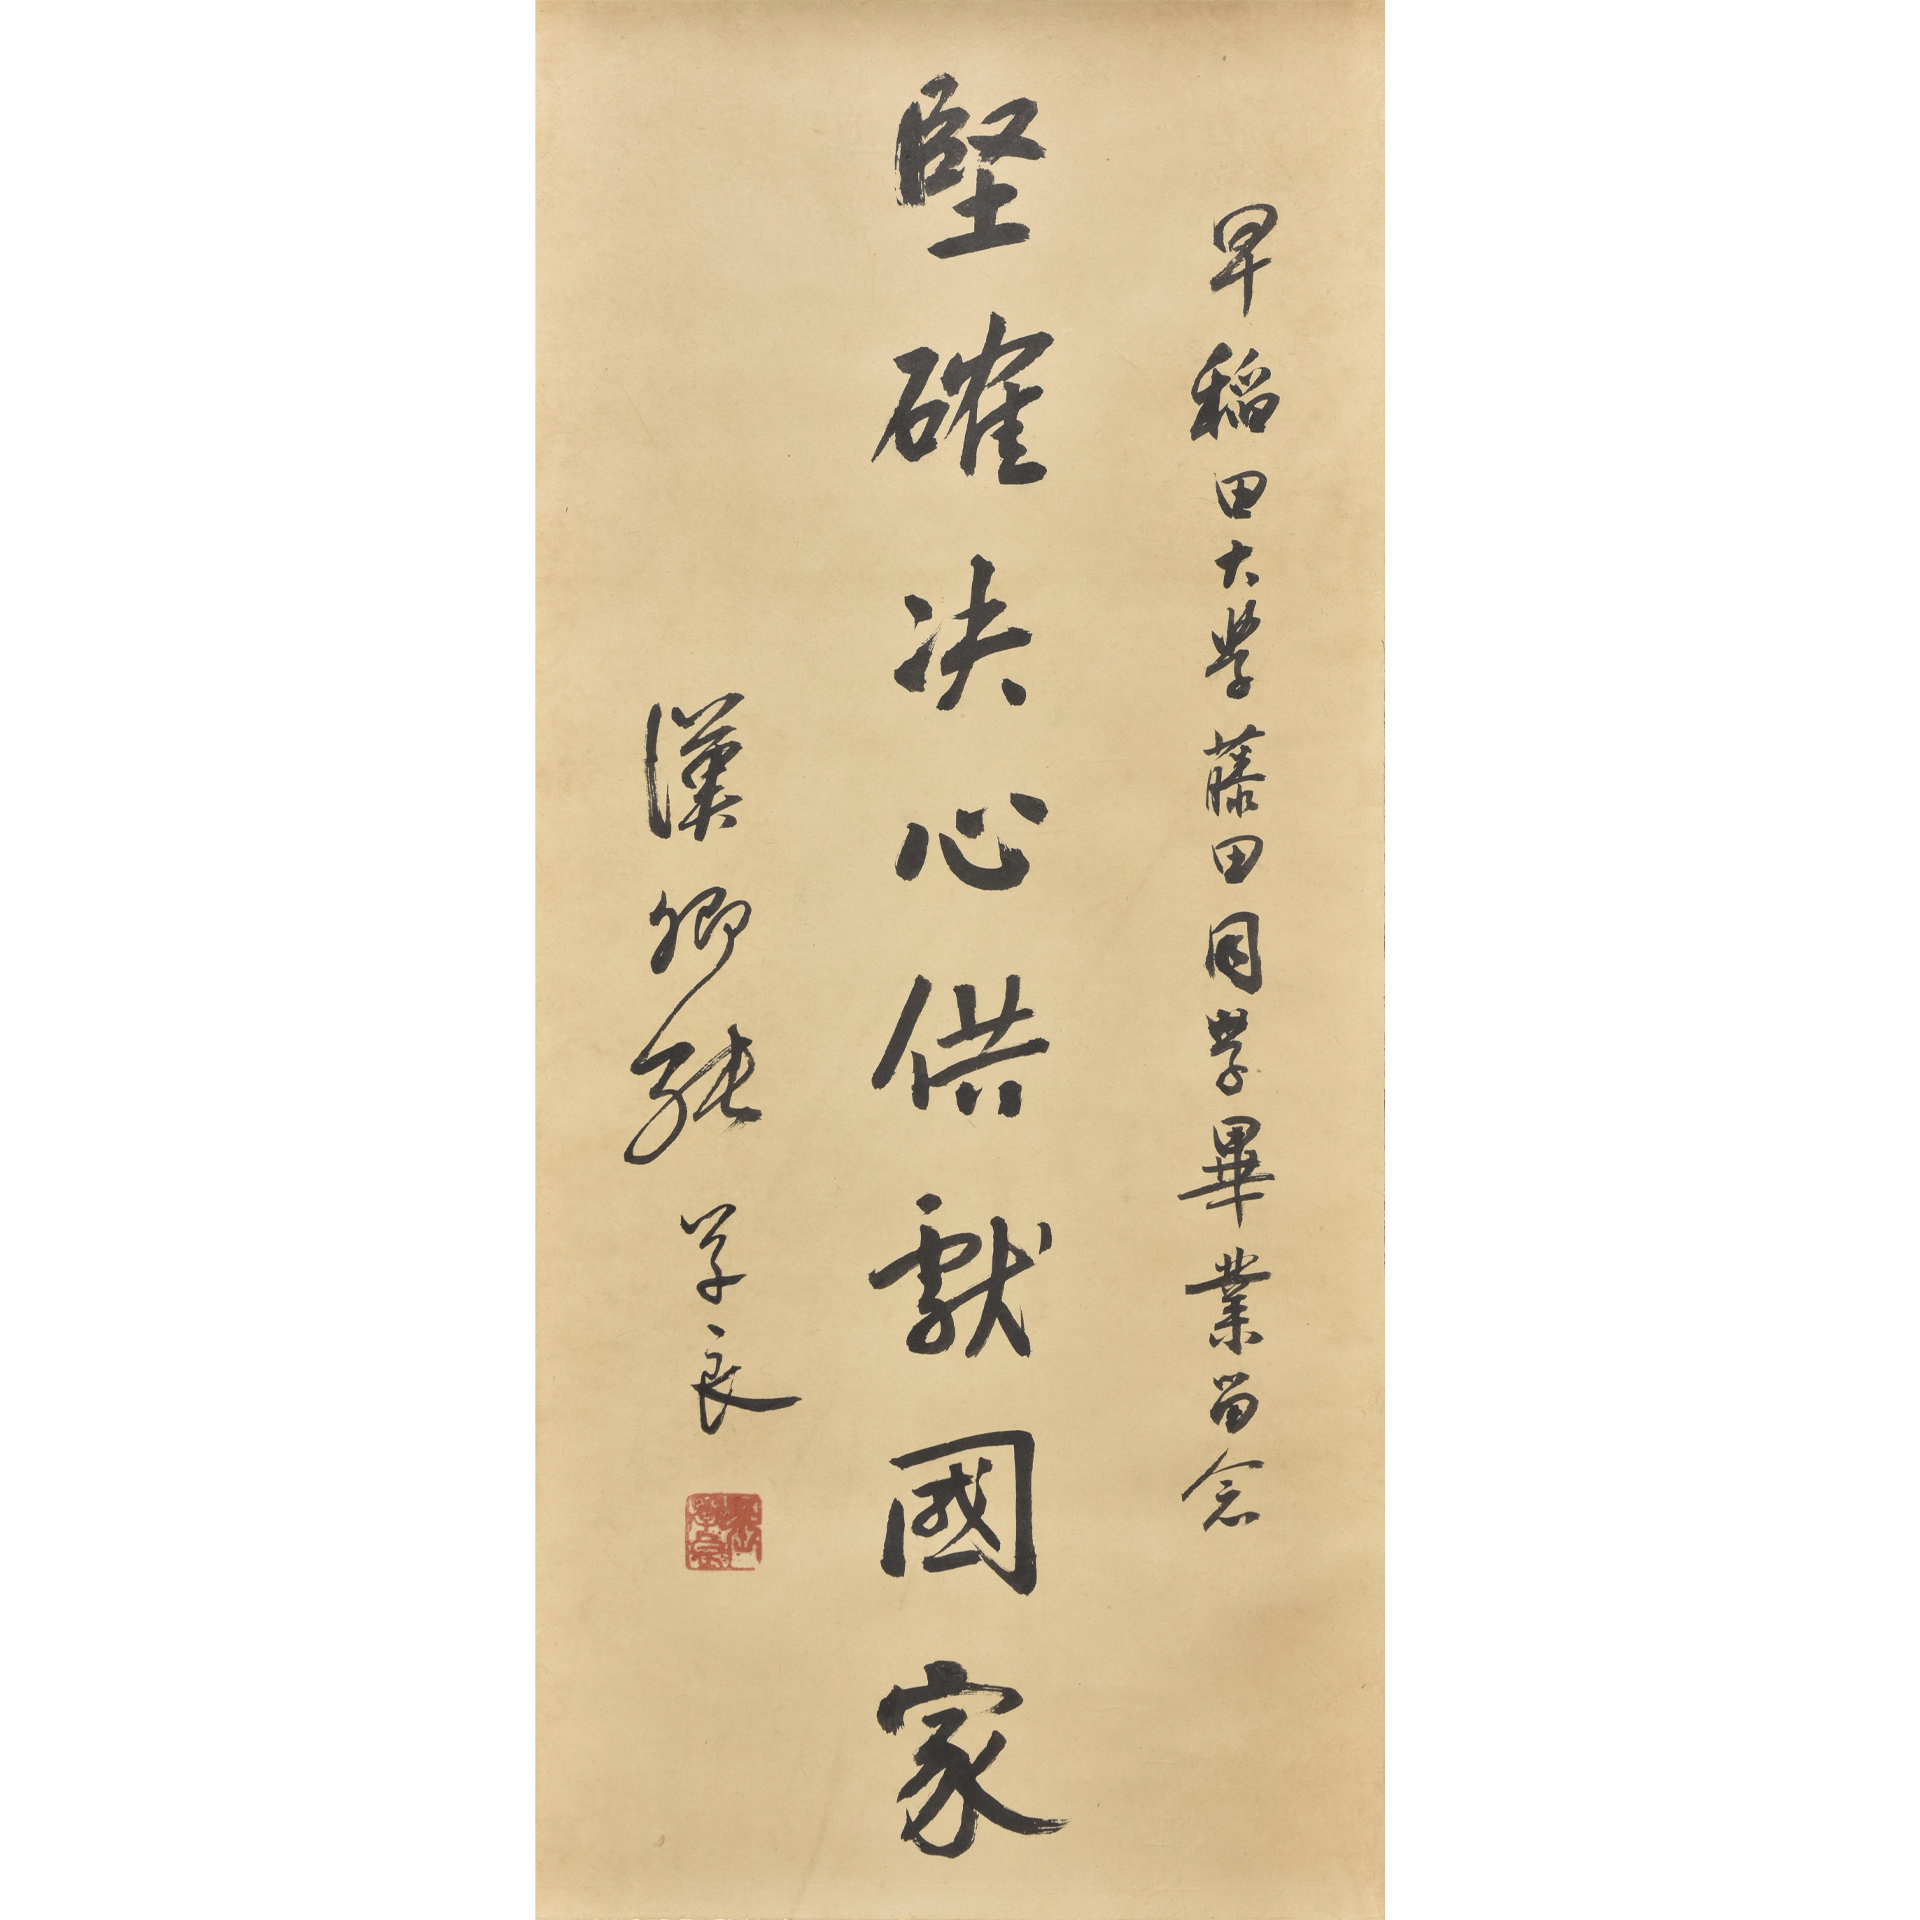 早稲田大学藤田同学畢業留念
堅確决心供献國家
漢卿張学良